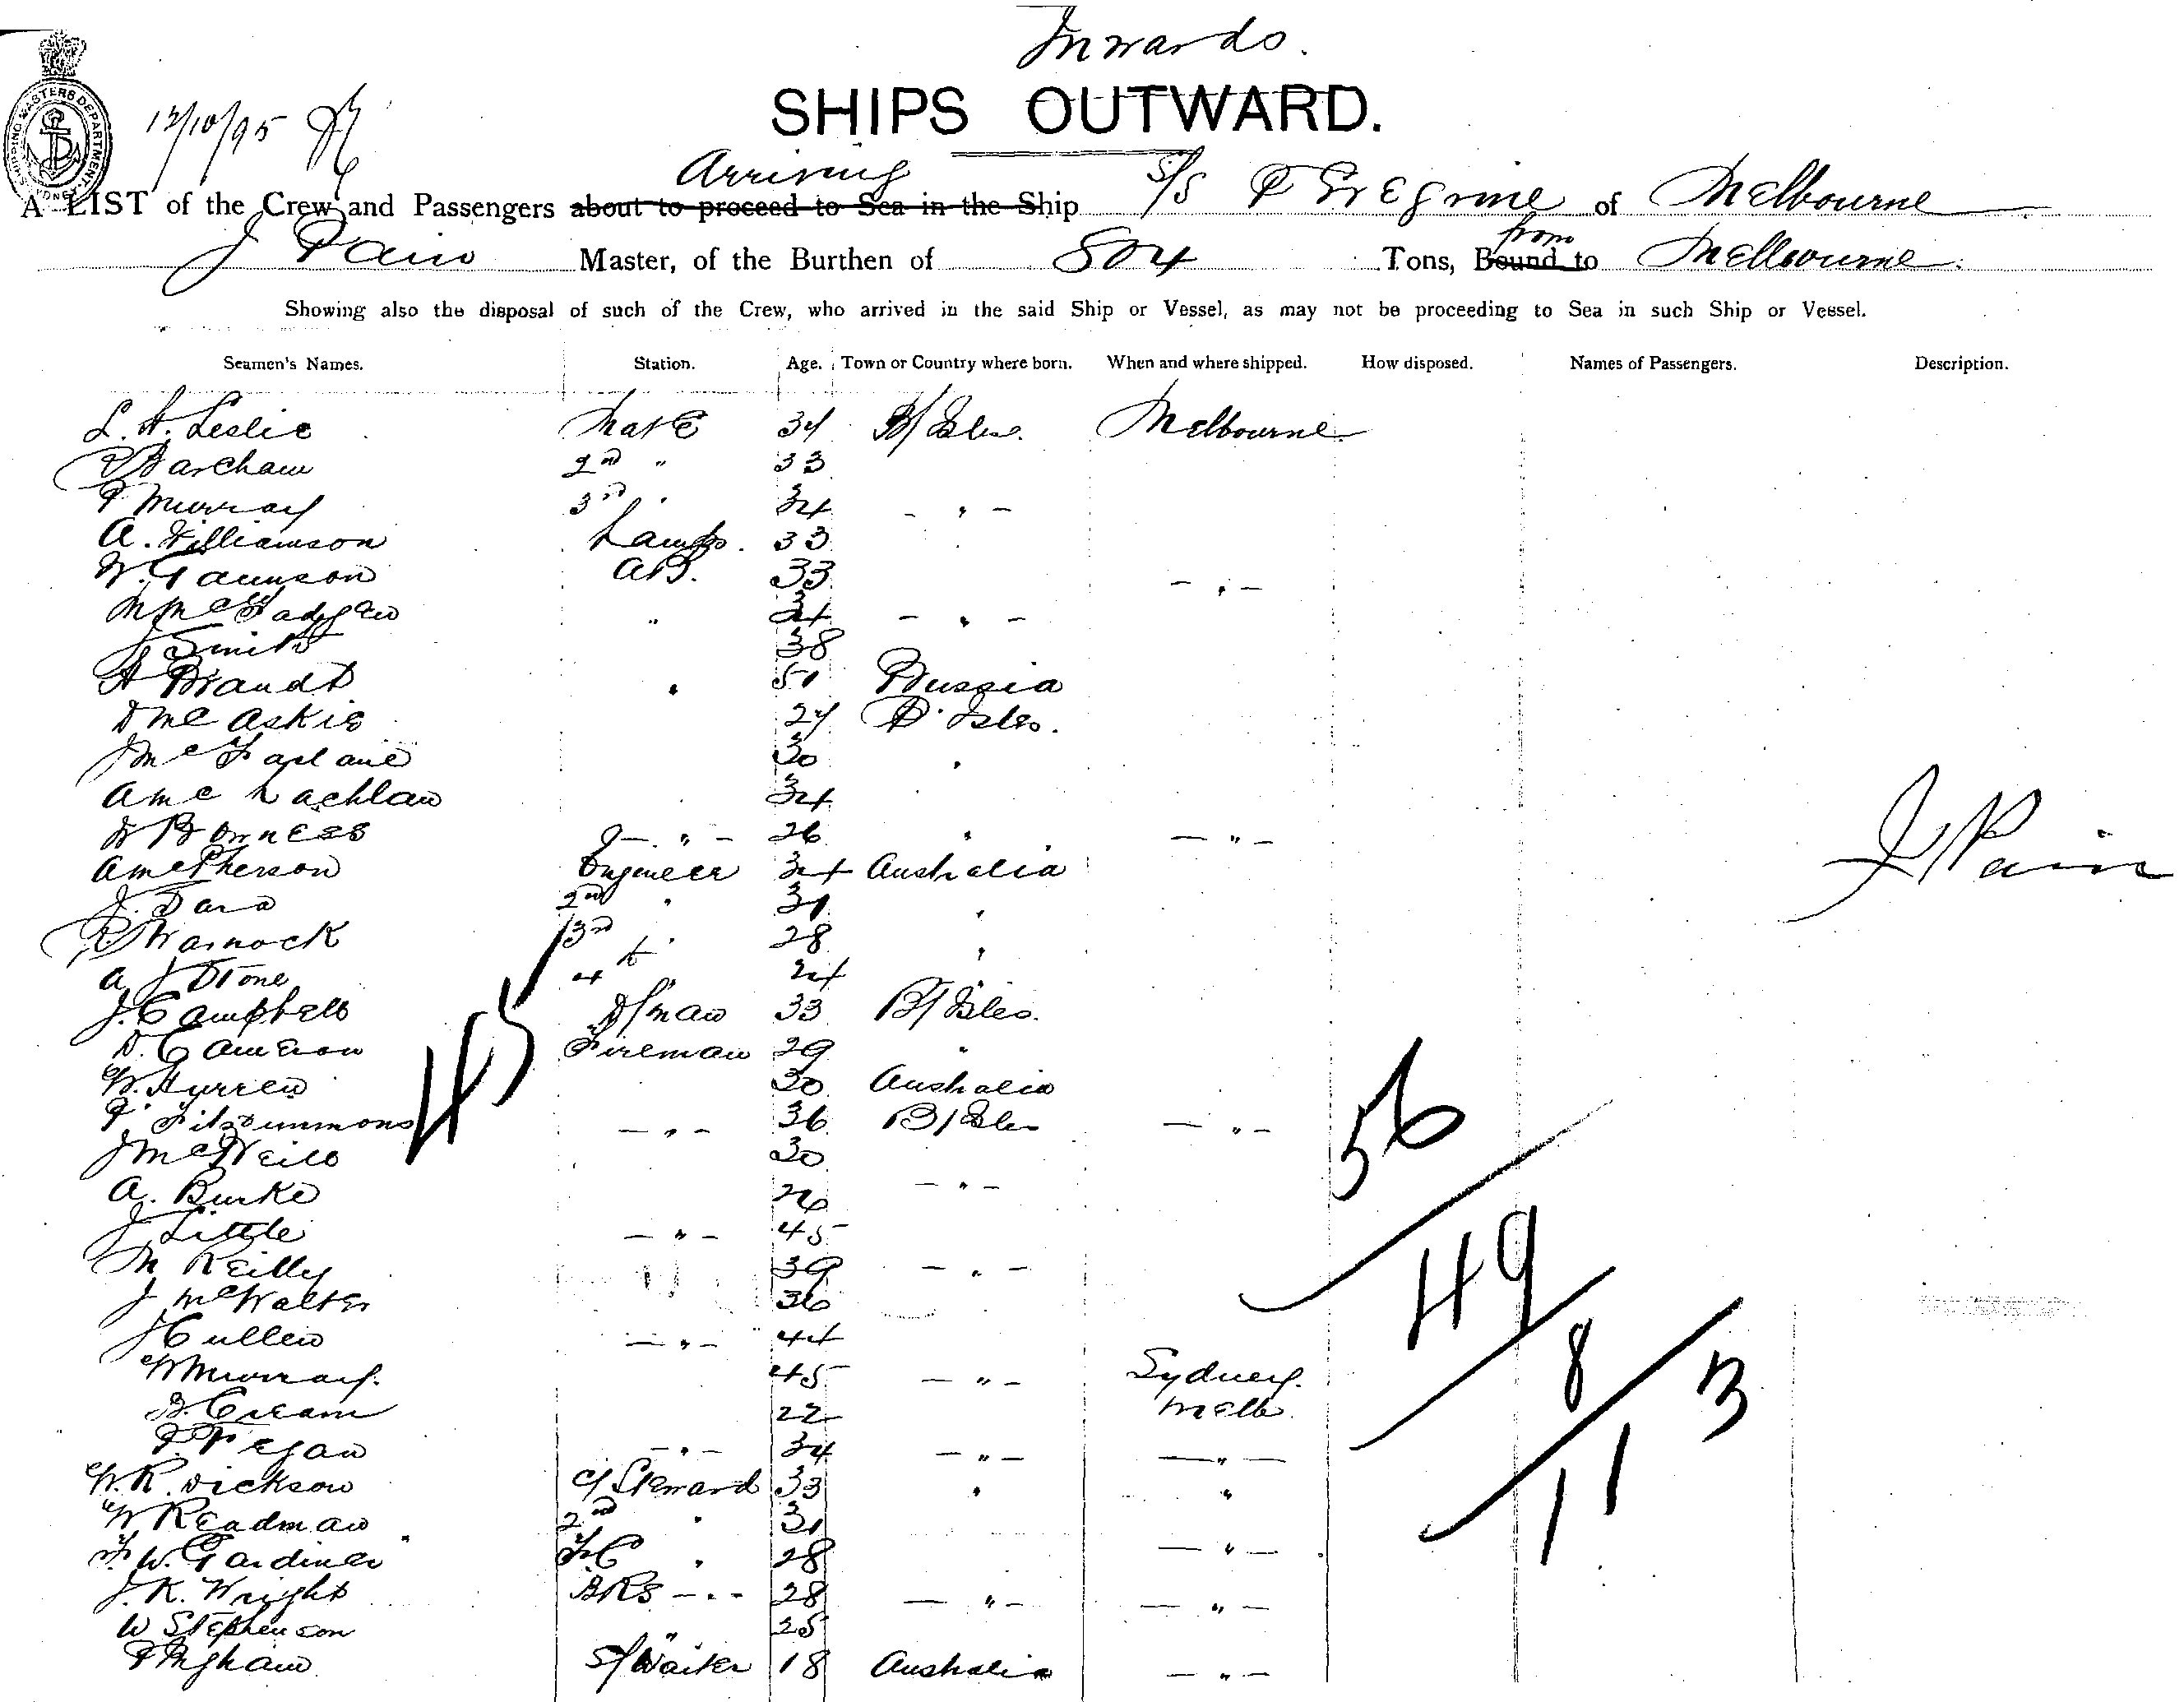 Inwards.
SHIPS OUTWARD.
SHIPPING MASTERS DEPARTMENT. SYDNEY
12/10/95
Arriving
A LIST of the Crew and Passengers about to proceed to Sea in the Ship S/S Peregrine of Melbourne
from
J Pain Master, of the Burthen of 804 Tons, Bound to Melbourne.
Showing also the disposal of such of the Crew, who arrived in the said Ship or Vessel, as may not be proceeding to Sea in such Ship or Vessel.
Seamen's Names. Station. Age. Town or Country where born. When and where shipped. How disposed. Names of Passengers. Description.
L. H. Leslie Mate 34 B/ Isles. Melbourne
Barcham 2nd " 33
P Murray 3rd " 34 - " -
A. Williamson Lamps. 33
W. Gaunson AB. 33 - " -
McFadyen " 34 - " -
J Smith 38
A Brandt " 51 Russia
D McAskie 27 B. Isles.
J McFarlane 30 "
A McLachlan 34
Borness - " - 26 " - " -
A McPherson Engineer 34 Australia
J. Dara 2nd " 31 "
R Warnock 3rd " 28 "
A J Stone 4t 24 "
J. Campbell D/man 33 B/ Isles.
D. Cameron Fireman 29 "
W. Hurren 30 Australia
F Fitzsimmons - " - 36 B/ Isles - " -
J McNeill 30
A. Burke 26 - " -
J Little - " - 45
M Reilly 39 - " -
J McWalter 36
J Cullen - " - 44
W Murray. 45 - " - Sydney.
Cream 22 Melb.
Fegan - " - 34 - " - - " -
W. R. Dickson C/ Steward 33 " "
W Readman 2nd " 31
F. W. Gardiner FC " 28 - " -
J. K. Wright BRS - " - 28 - " - - " -
W Stephenson " 25
P Ingham S/Waiter 18 Australia - " -
45
J Pain
56
49
8
11 3